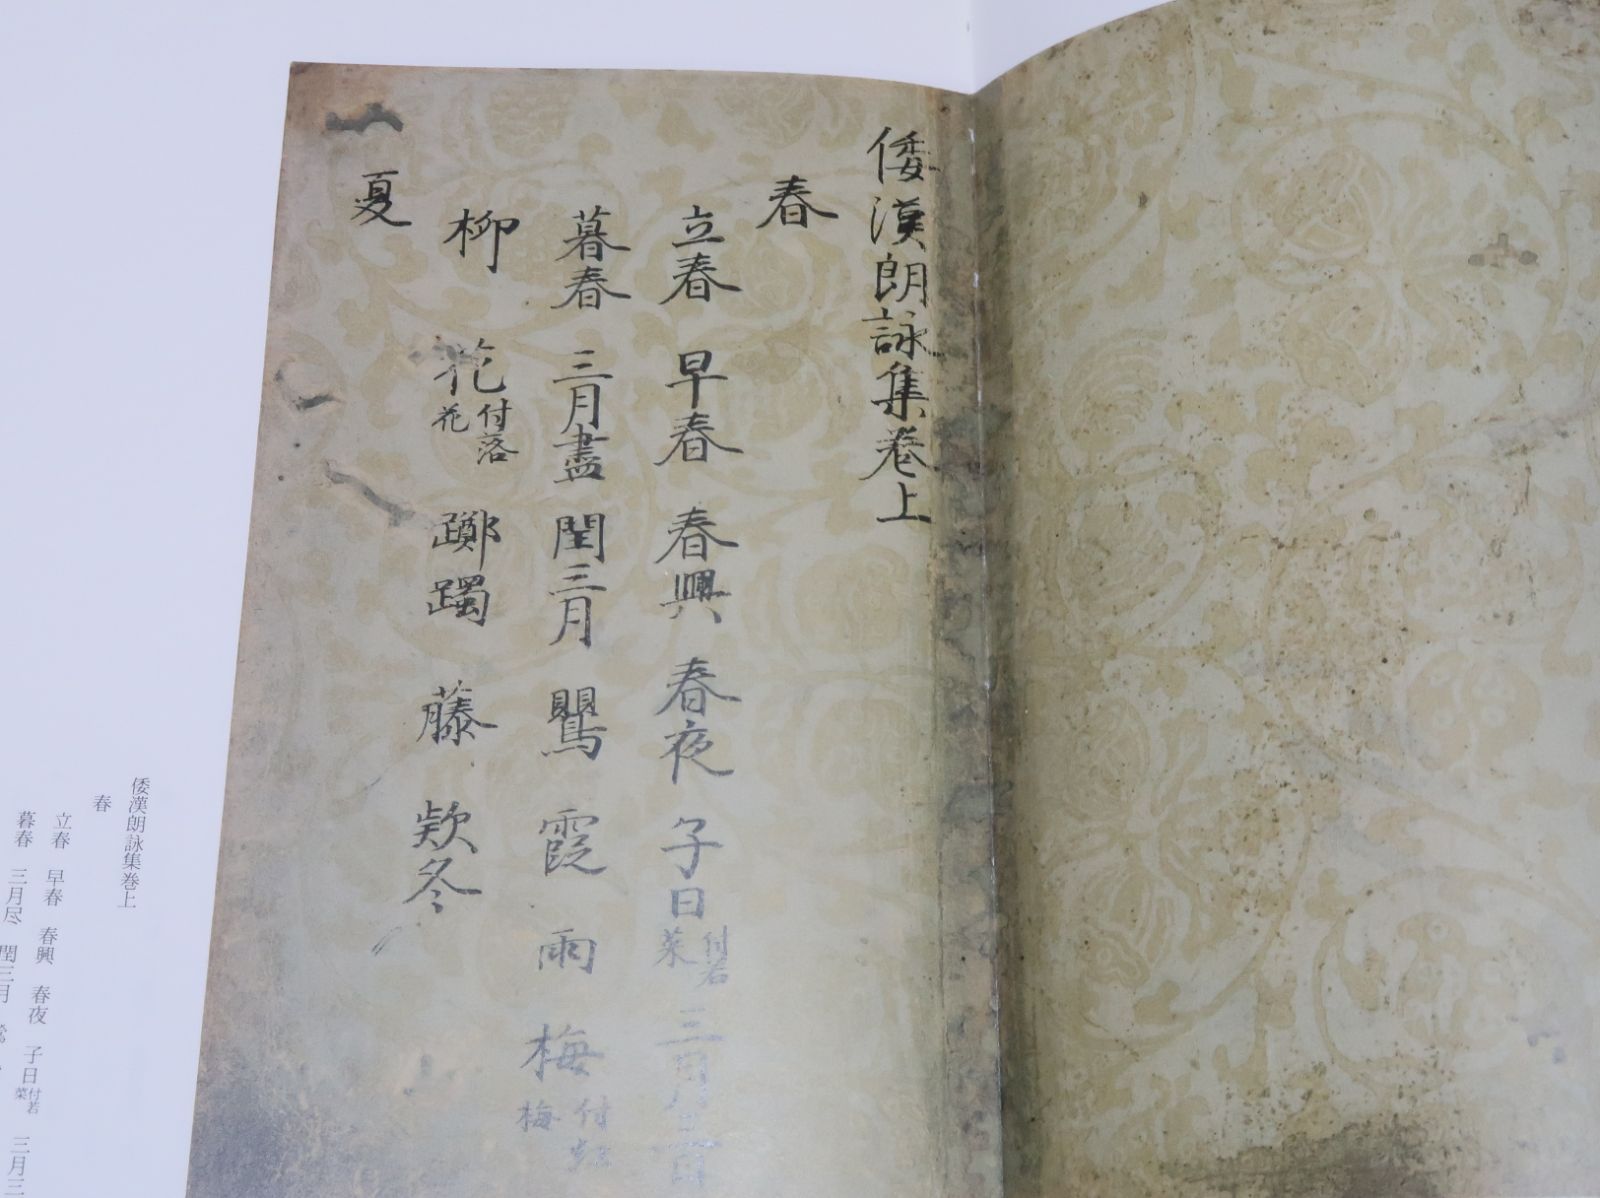 倭漢朗詠集巻上
春
立春 早春 春興 春夜 子日付若菜 三月三日
暮春 三月盡 閏三月 鸎 霞 雨 梅付紅梅
柳 花付落花 躑躅 藤 欵冬
夏
倭漢朗詠集巻上
春
立春 早春 春興 春夜 子日付若菜 三月三
暮春 三月尽 閏三月 鶯